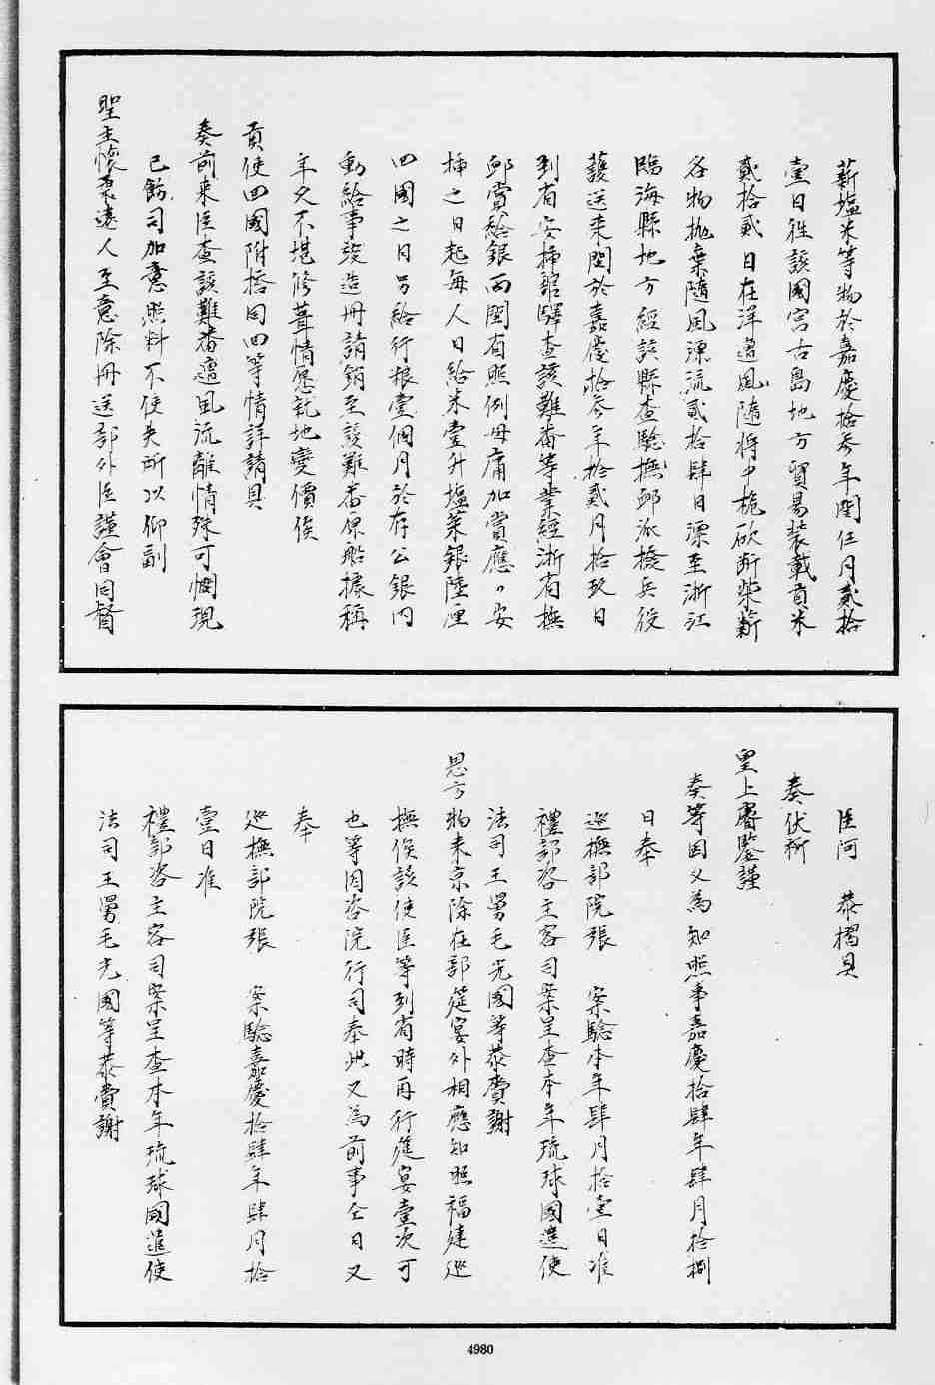 薪塩米等物於嘉慶拾叁年閏伍月貳拾
壹日往該國宮古島地方貿易装載貢米
貳拾貳日在洋遭風隨將中桅砍斷柴薪
各物拋棄隨風漂流貳拾肆日漂至浙江
臨海縣地方經該縣查驗撫邺派撥兵役
護送来閩於嘉慶拾叁年拾貳月拾玖日
到省安揷舘驛查該難畨等業經浙省撫
邺賞給銀両閩省照例毋庸加賞應〃安
揷之日起每人日給米壹升塩菜銀陸厘
四國之日另給行粮壹個月於存公銀内
動給事竣造冊請銷至該難畨原船據稱
年久不堪修葺情愿就地變價俟
貢使四國附搭囘四等情詳請具
奏前来臣查該難畨遭風流離情殊可憫現
已飭司加意照料不使失所以仰副
聖主懷柔遠人至意除冊送部外臣謹會同督
臣阿　恭摺具
奏伏祈
皇上睿鑒謹
奏等因又為知照事嘉慶拾肆年肆月拾捌
日奉
巡撫部院張　案驗本年肆月拾壹日准
禮部咨主客司案呈查本年琉球國遣使
法司王舅毛光國等恭賫謝
恩方物来京除在部筵宴外相應知照福建巡
撫俟該使臣等到省時再行筵宴壹次可
也等因咨院行司奉此又為前事仝日又
奉
巡撫部院張　案驗嘉慶拾肆年肆月拾
壹日准
禮部咨主客司案呈查本年琉球國遣使
法司王舅毛光國等恭賫謝
4980